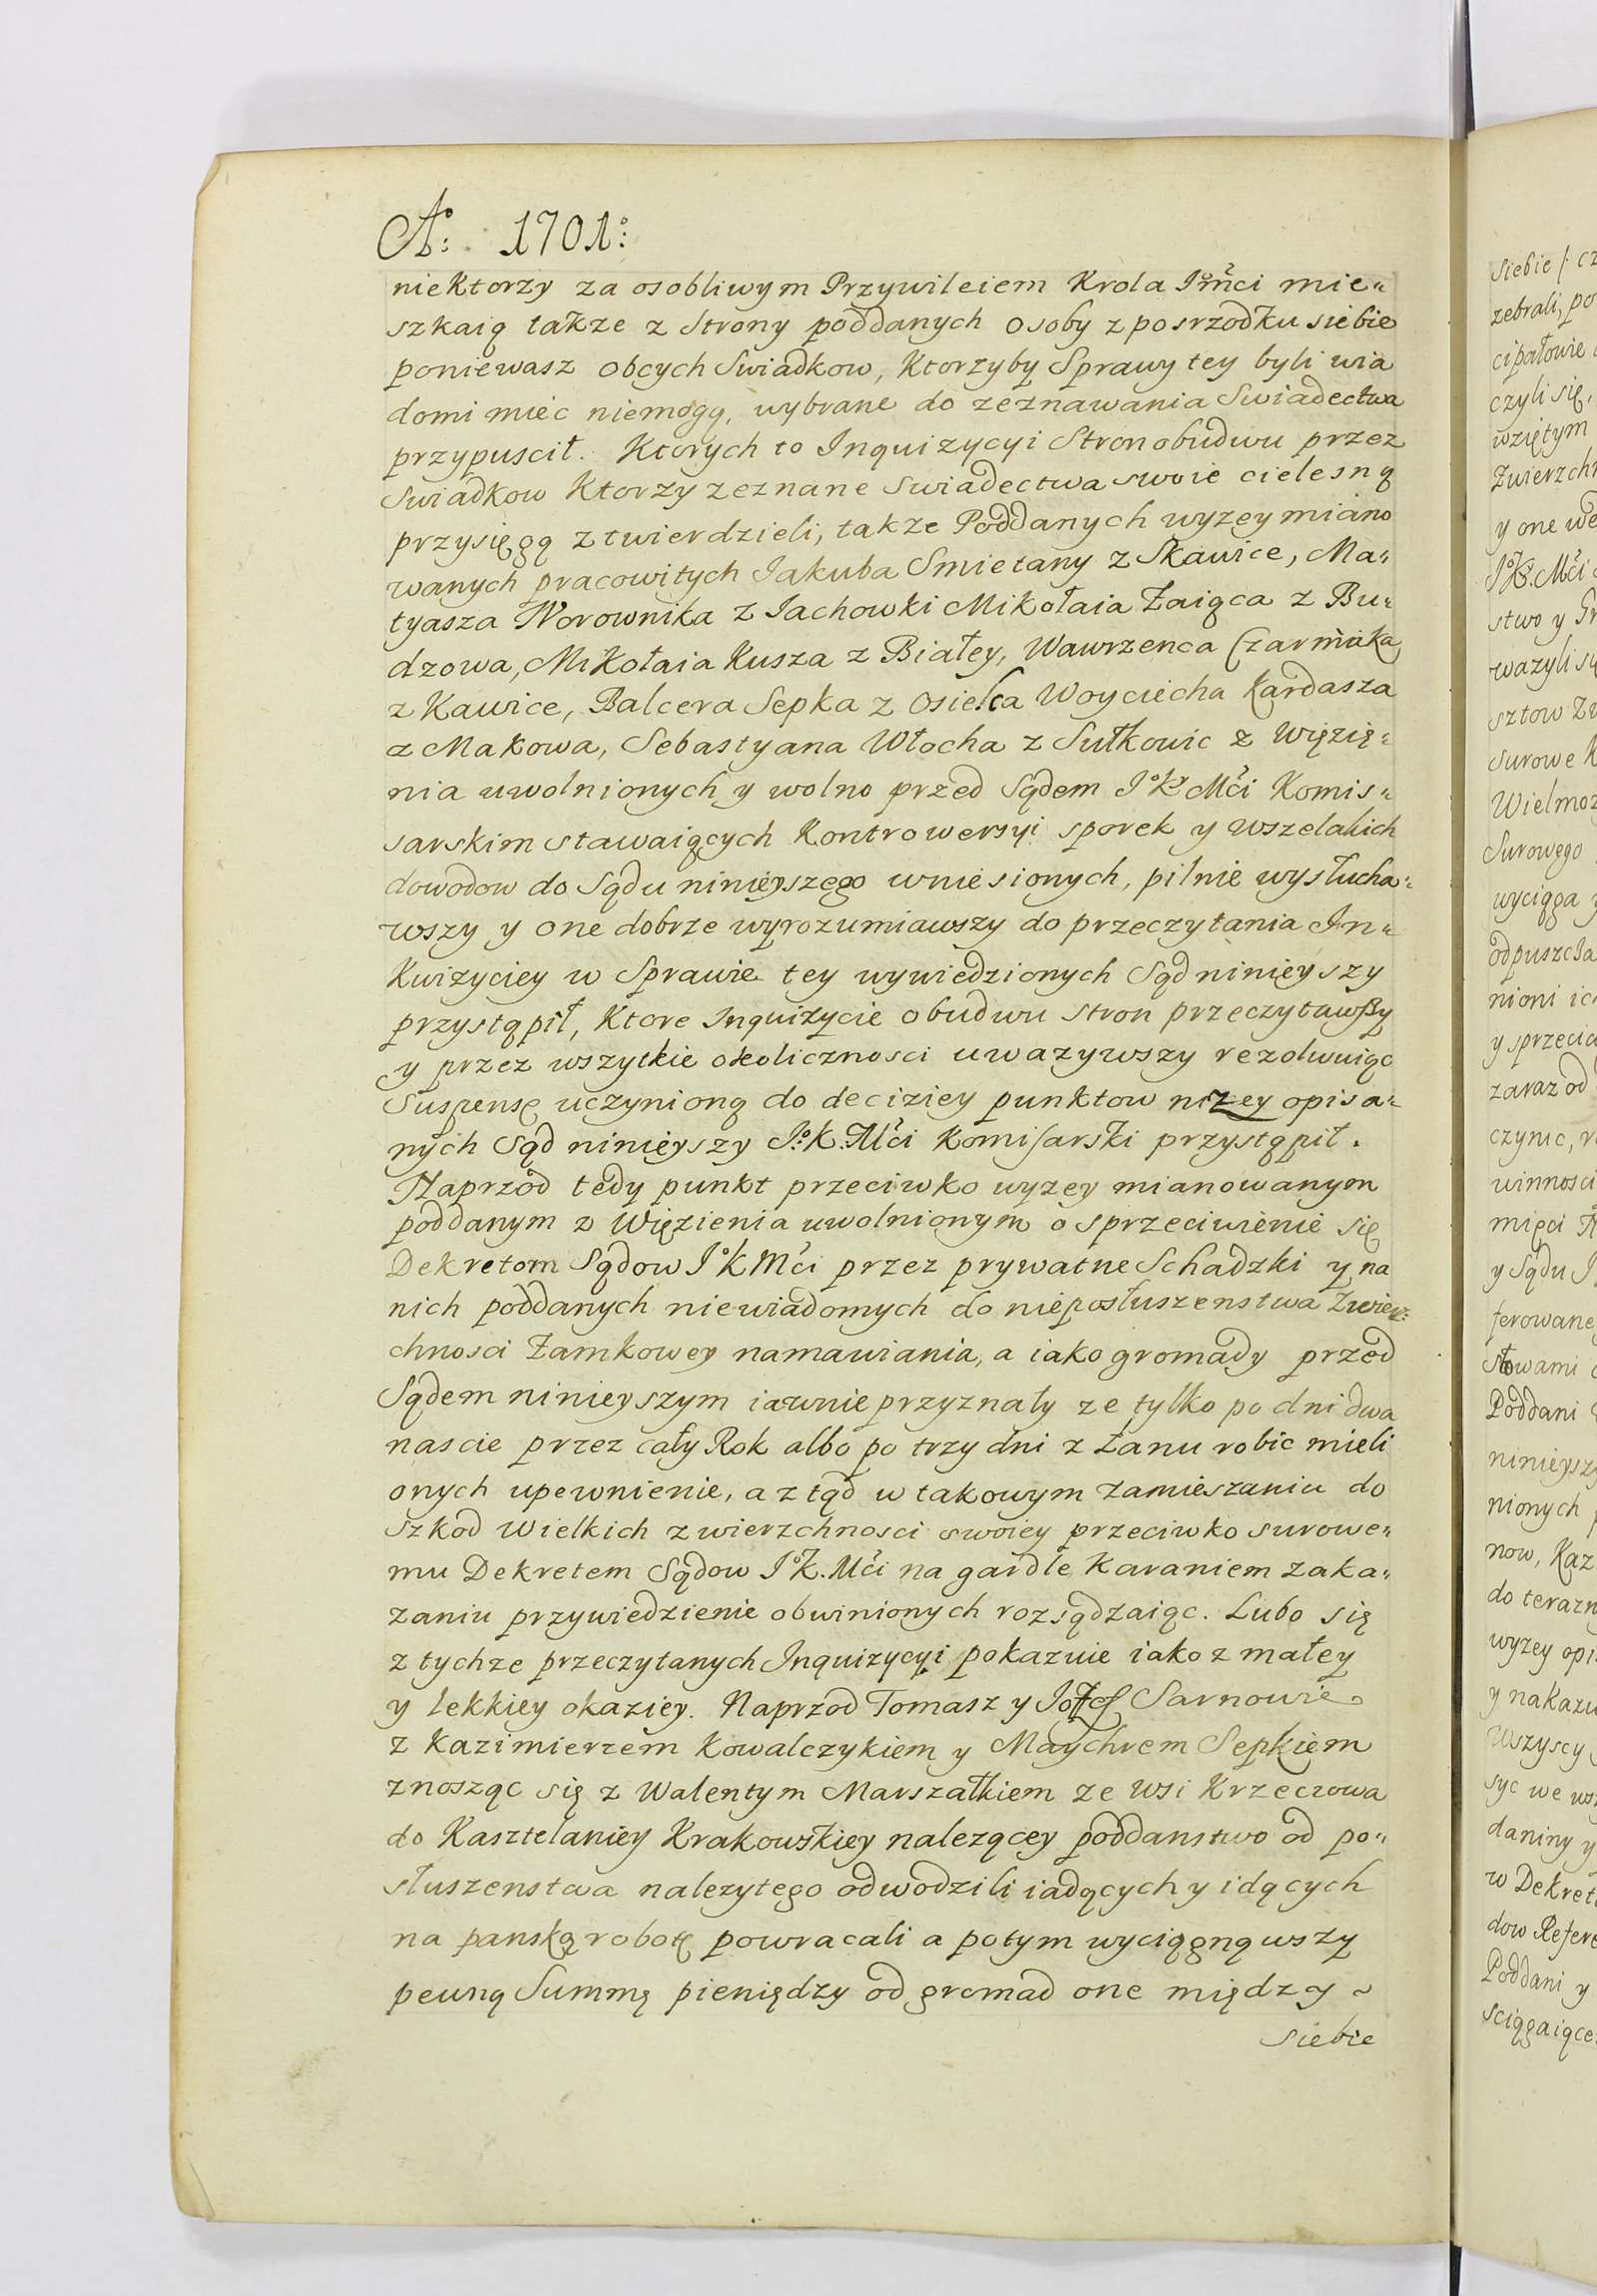 Aº: 1701º:
niektorzy za osobliwym Przywileiem Krola Jmci mie„
szkaią takze z Strony poddanych osoby z posrzodku siebie
poniewasz obcych Swiadkow, Ktorzyby Sprawy tey byli wia
domi miec niemogą, wybrane do zeznawania Swiadectwa
przypuscił. Ktorych to Inquizycyi Stron obudwu przez
Swiadkow Ktorzy zeznane swiadectwa swoie cielesną
przysięgą ztwierdzieli, takze Poddanych wyzey miano
wanych pracowitych Iakuba Smietany z Skawice, Ma„
tyasza Worownika z Iachowki Mikołaia Zaiąca z Bu„
dzowa, Mikołaia Kusza z Białey, Wawrzenca Czarniaka
z Kawice, Balcera Sepka z Osielca Woyciecha Kardasza
z Makowa, Sebastyana Włocha z Sułkowic z Więzię„
nia uwolnionych y wolno przed Sądem J K Mci Komis„
sarskim stawaiących Kontrowersyi sporek y wszelakich
dowodow do Sądu ninieyszego wniesionych, pilnie wysłucha„
wszy y one dobrze wyrozumiawszy do przeczytania In„
kwizyciey w Sprawie tey wywiedzionych Sąd ninieyszy
przystąpił, Ktore Inquizycie obudwu stron przeczytawszy
y przez wszytkie okolicznosci uwazywszy rezolwuiąc
Suspensę uczynioną do deciziey punktow nizey opisa„
nych Sąd ninieyszy J: K. Mci Komisarski przystąpił.
Naprzod tedy punkt przeciwko wyzey mianowanym
poddanym z Więzienia uwolnionym o sprzeciwienie się
Dekretom Sądow J K Mci przez prywatne Schadzki y na
nich poddanych niewiadomych do nieposłuszenstwa Zwierz„
chnosci Zamkowey namawiania, a iako gromady przed
Sądem ninieyszym iawnie przyznały ze tylko po dni dwa
nascie przez cały Rok albo po trzy dni z Łanu robic mieli
onych upewnienie, a ztąd w takowym zamieszaniu do
szkod Wielkich zwierzchnosci swoiey przeciwko surowe„
mu Dekretem Sądow J K. Mci na gardle Karaniem zaka„
zaniu przywiedzienie obwinionych rozsądzaiąc. Lubo się
z tychze przeczytanych Inquizycyi pokazuie iako z małey
y lekkiey okaziey. Naprzod Tomasz y Jozef Sarnowie
z Kazimierzem Kowalczykiem y Maychrem Sepkiem
znosząc się z Walentym Marszałkiem ze wsi Krzeczowa
do Kasztelaniey Krakowskiey nalezącey poddanstwo od po„
słuszenstwa nalezytego odwodzili iadących y idących
na panską robotę powracali a potym wyciągnąwszy
pewną Summę pieniędzy od gromad one między ~
siebie
siebie /: cz
zebrali, po
cipałowie
czyli się,
wziętym
Zwierzch
y one we
J K. Mci
stwo y Gr
wazyli się
sztow Zw
surowe K
Wielmoz
Surowego
wyciąga y
odpuszcza
nioni ich
y sprzeciw
zaraz od
czynic, r
winnosci
mięci N
y Sądu J
ferowane
słowami
Poddani
ninieysz
nionych
now, Kaz
do terazn
wyzey opi
y nakazu
Wszyscy
syc we wsz
daniny y
w Dekret
dow Refere
Poddani y
sciągaiące